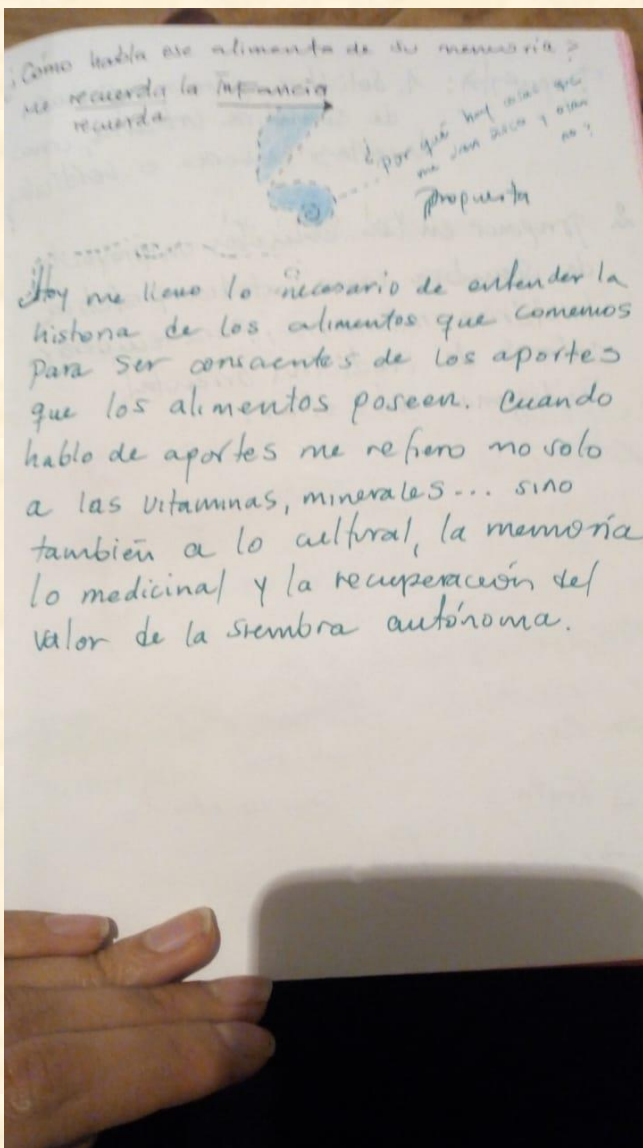 ¿Cómo habla ese alimento de su memoria?
me recuerda la Infancia
recuerda
¿por qué hay cosas que
me dan asco y otras
no?
Propuesta
Hoy me llevo lo necesario de entender la
historia de los alimentos que comemos
para ser conscientes de los aportes
que los alimentos poseen. Cuando
hablo de aportes me refiero no solo
a las vitaminas, minerales... sino
también a lo cultural, la memoria
lo medicinal y la recuperación del
valor de la siembra autónoma.